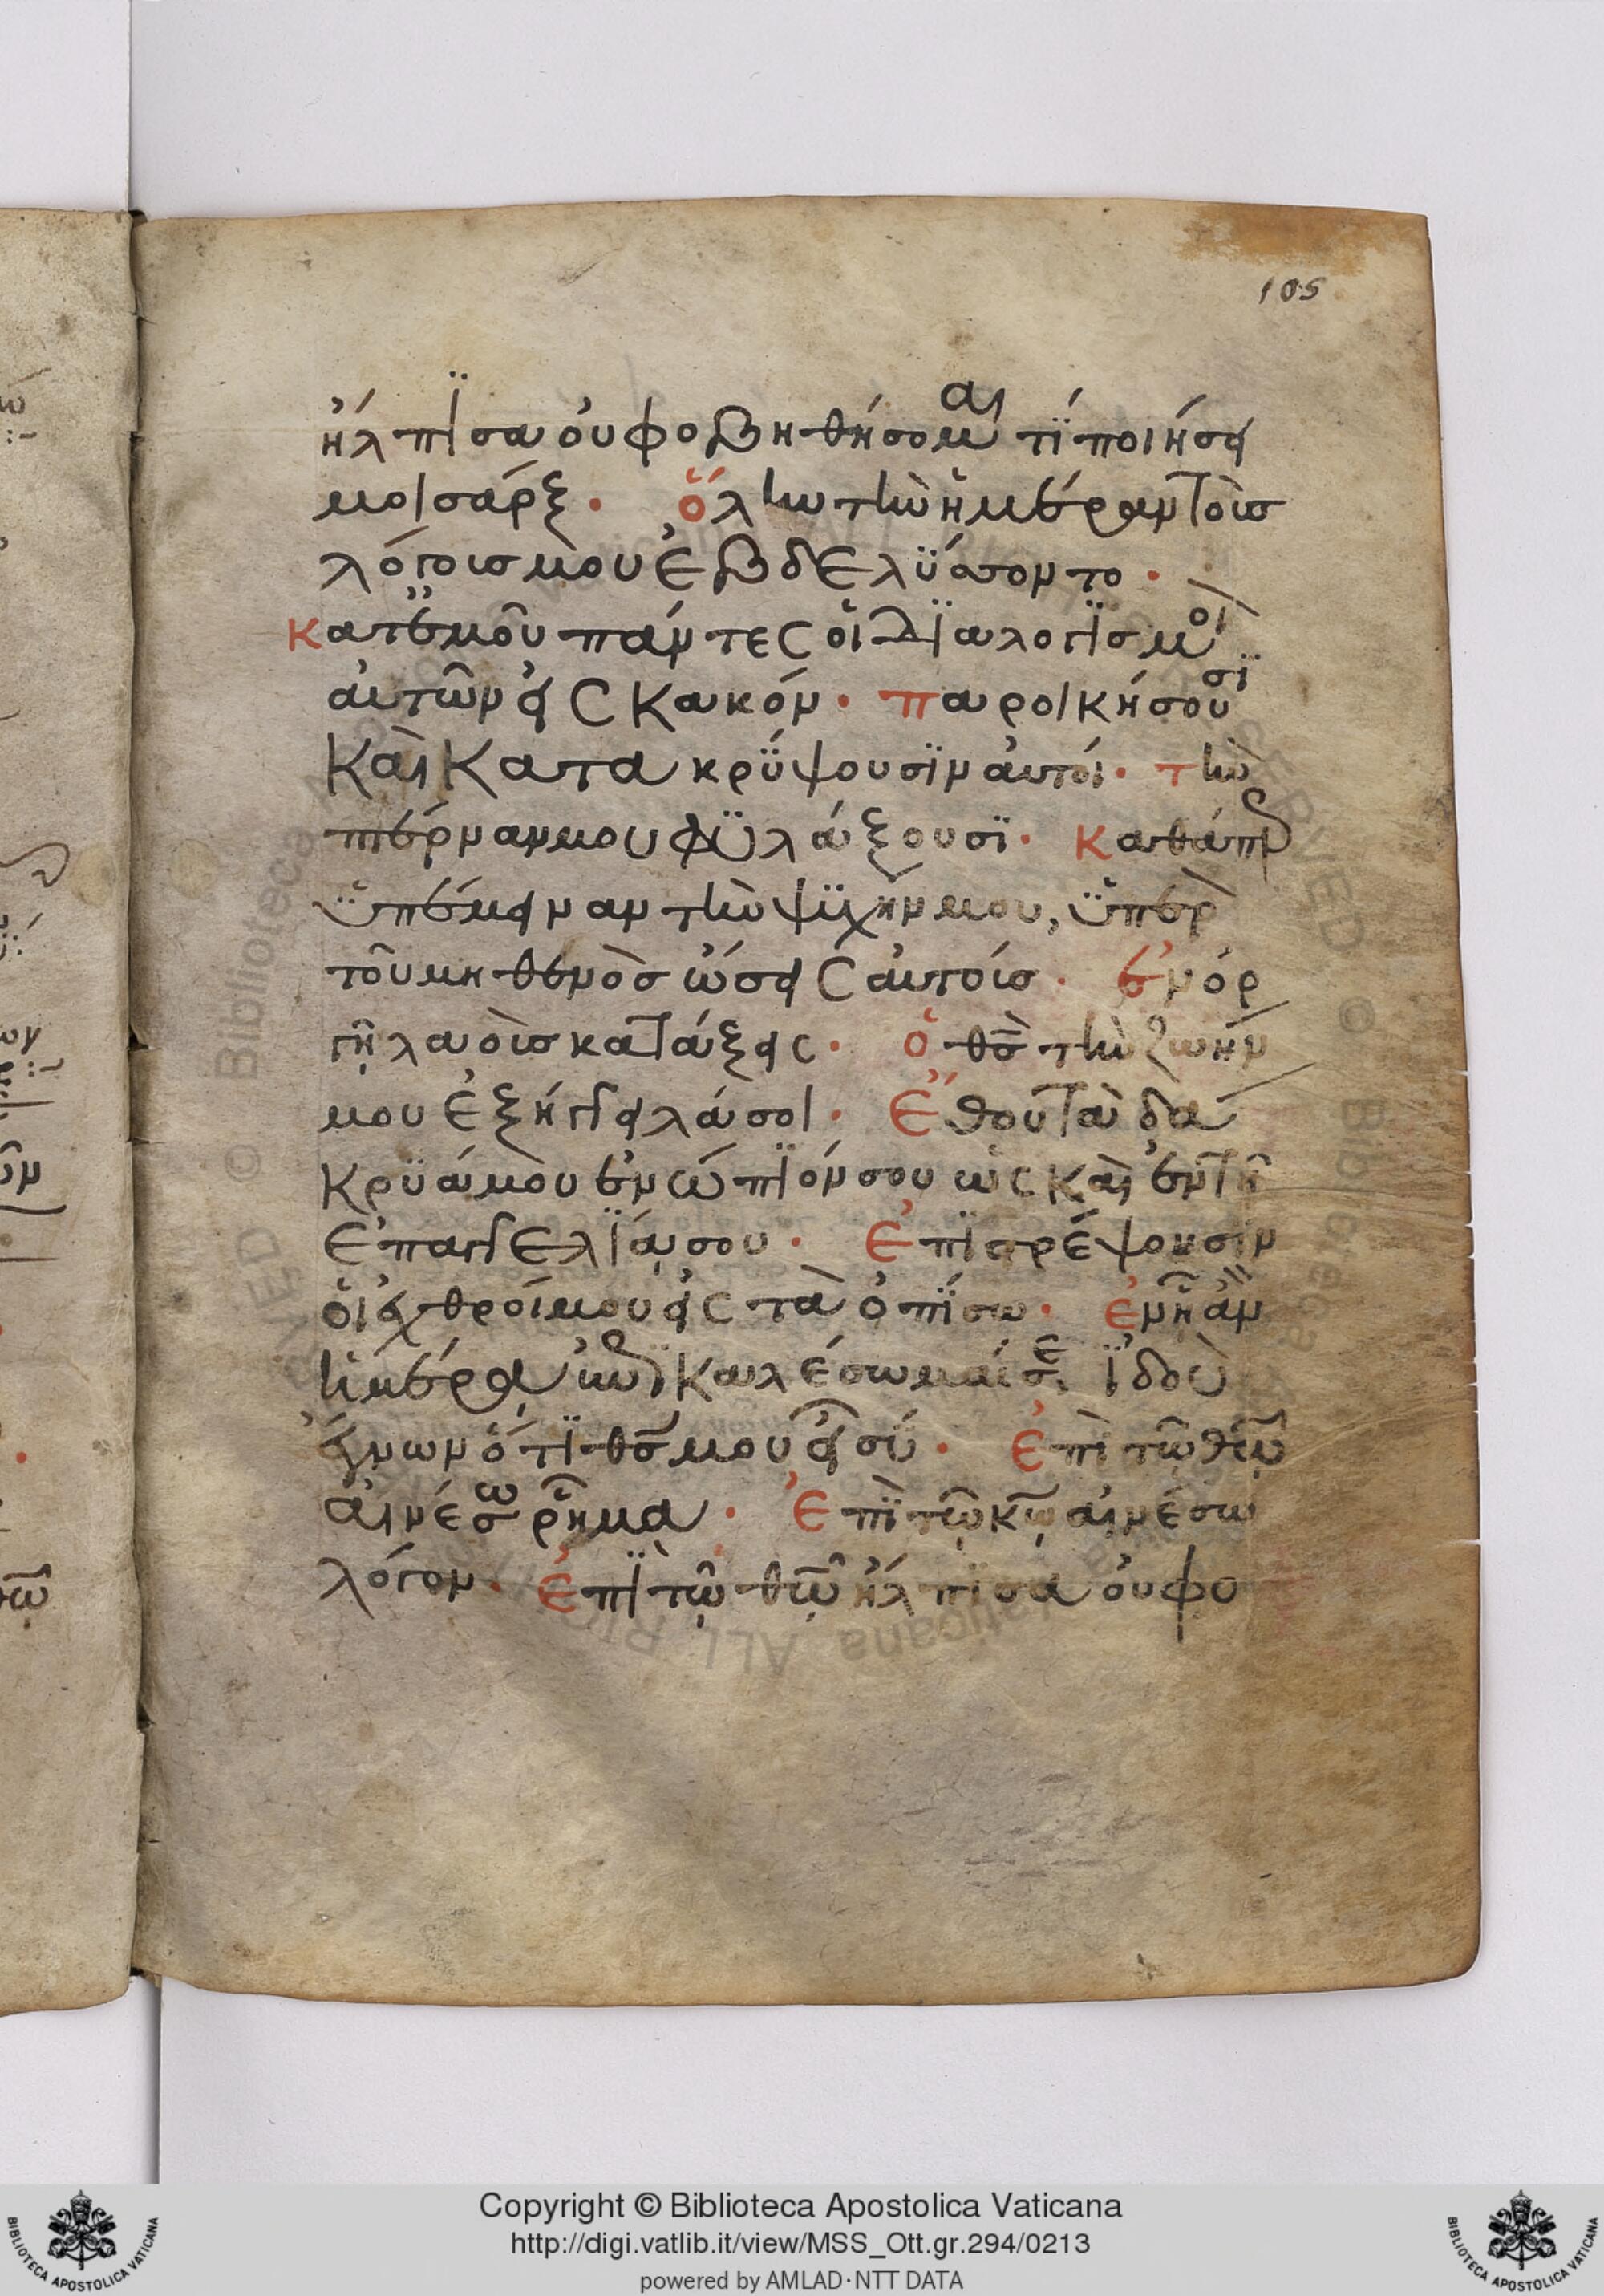 105
ἤλπϊσα οὐ φοβηθήσομαι τί ποιήσει
μοι σάρξ· ὅλην τὴν ἡμέραν τοὺς
λόγους μου ἐβδελύσσοντο·
κατ' ἐμοῦ πάντες οἱ διαλογϊσμοὶ
αὐτῶν εἰς κακόν· παροικήσουσϊ
καὶ κατακρύψουσϊν αὐτοί· τὴν
πτέρναν μου φϋλάξουσϊ· καθάπερ
ϋπέμειναν τὴν ψϋχήν μου, ϋπὲρ
τοῦ μηθενὸς ὤσεις αὐτούς· ἐν ὀρ
γῇ λαοὺς κατάξεις· ὁ θς τὴν ζωήν
μου ἐξήγγειλά σοι· ἔθου τὰ δά
κρϋά μου ἐνώπϊόν σου ὡς καὶ ἐν τῇ
ἐπαγγελΐᾳ σου· ἐπϊστρέψουσϊν
οἱ ἐχθροί μου εἰς τὰ ὀπίσω· ἐν ᾗ ἂν
ἡμέρᾳ ἐπικαλέσωμαί σε ϊδοὺ
ἔγνων ὅτϊ θς μου εἶ σύ· ἐπὶ τῷ θῷ
αἰνέσω ῥῆμα· ἐπὶ τῷ κῷ αἰνέσω
λόγον· ἐπὶ τῷ θῷ ἤλπϊσα οὐ φο
Copyright © Biblioteca Apostolica Vaticana
http://digi.vatlib.it/view/MSS_Ott.gr.294/0213
powered by AMLAD·NTT DATA
BIBLIOTECA APOSTOLICA VATICANA
BIBLIOTECA APOSTOLICA VATICANA